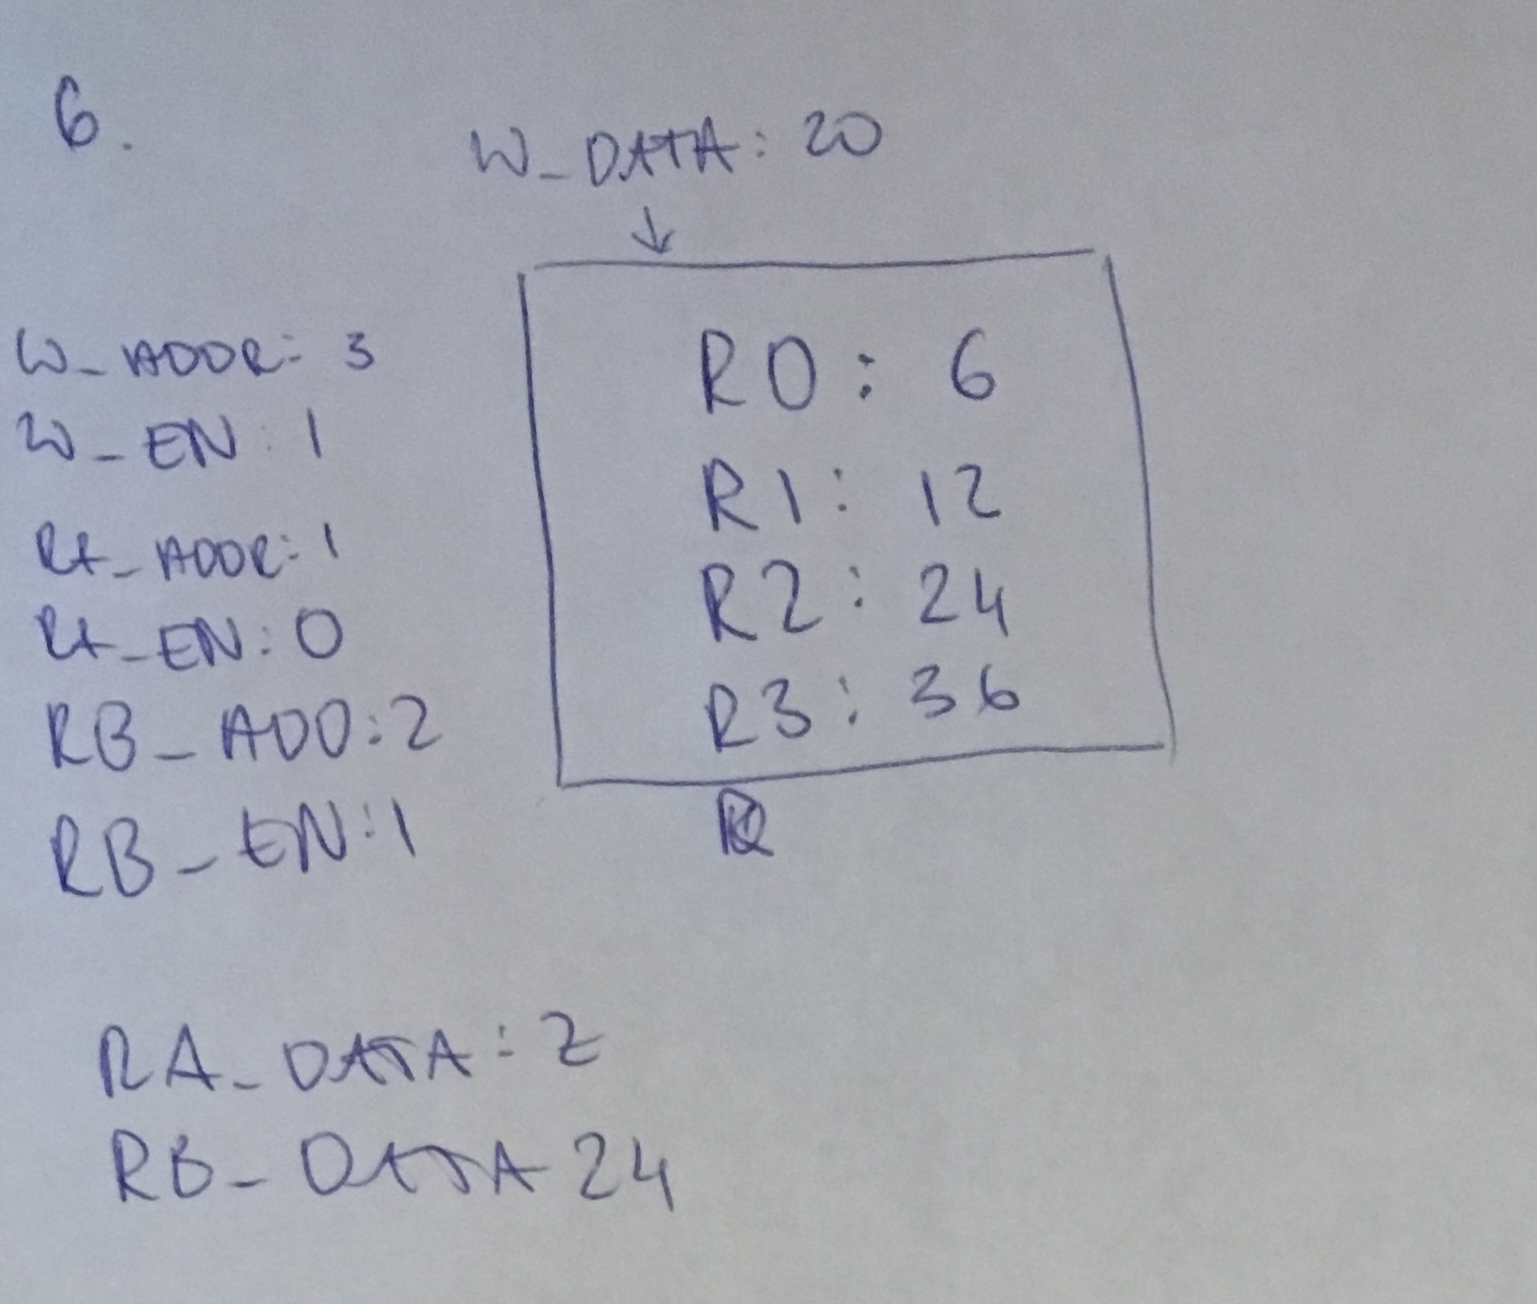 6.
W_DATA: 20
↓
W_ADDR: 3
W_EN: 1
RA_ADDR: 1
RA_EN: 0
RB_ADD: 2
RB_EN: 1
R0: 6
R1: 12
R2: 24
R3: 36
RA_DATA: Z
RB_DATA 24